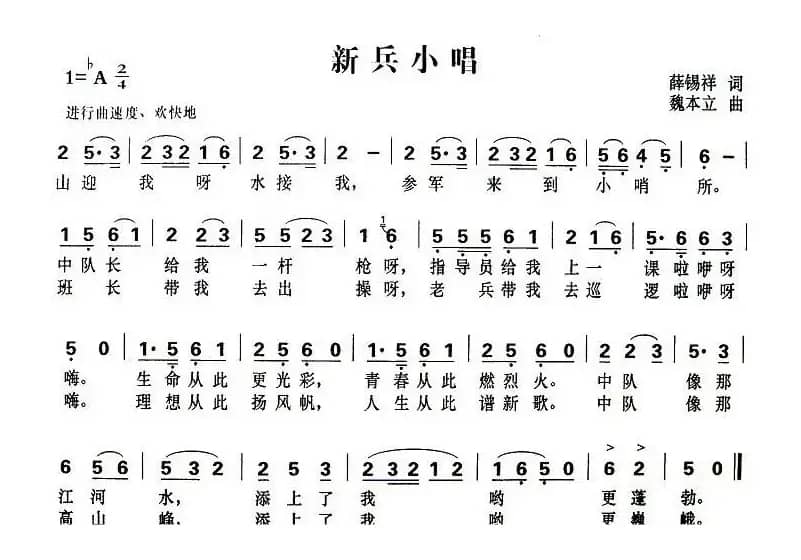 新兵小唱
1=♭A 2/4
薛锡祥 词
进行曲速度、欢快地
魏本立 曲
2 5·3 | 2 3 2 1 6 | 2 5·3 | 2 - | 2 5·3 | 2 3 2 1 6 | 5·6 4 5 | 6 - |
山迎 我 呀 水接 我, 参军 来 到 小哨 所。
1 5 6 1 | 2 2 3 | 5 5 2 3 | 1 1 6 | 5·5 5 6 1 | 2 1 6 | 5·6 6 3 |
中队长 给我 一杆 枪呀, 指导员给我 上一 课啦咿呀
班长 带我 去出 操呀, 老兵带我 去巡 逻啦咿呀
5 0 | 1·5 6 1 | 2 5 6 0 | 1·5 6 1 | 2 5 6 0 | 2 2 3 | 5·3 |
嗨。 生命从此 更光彩, 青春从此 燃烈火。 中队 像那
嗨。 理想从此 扬风帆, 人生从此 谱新歌。 中队 像那
6 5 6 | 5 3 2 | 2·5 5 3 | 2 3 1 2 | 1 6 5 0 | 6 2 | 5 0 ‖
江河 水, 添上了 我 哟 更蓬 勃。
高山 峰, 添上了 我 哟 更巍 峨。